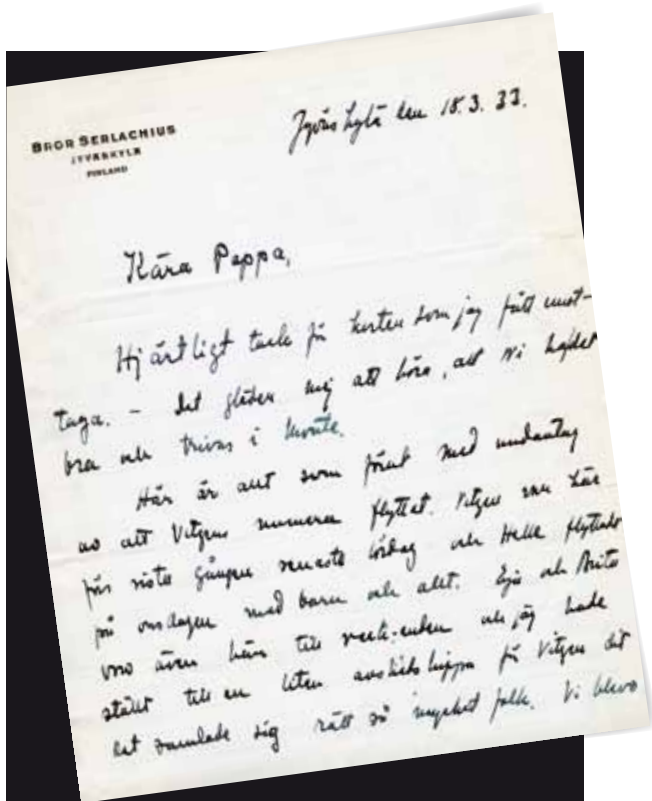 BROR SERLACHIUS
JYVÄSKYLÄ
FINLAND
Jyväskylä den 18.3.33.
Kära Pappa,
Hjärtligt tack för korten som jag fått mot-
taga. – Det gläder mig att höra, att Ni
bra och trivas i Monte.
Här är allt som förut med undantag
av att Vitgens numera flyttat. Vitgen var här
för sista gången senaste lördag och Helle flyttade
på onsdagen med barn och allt. och Brita
voro även här till week-enden och jag hade
ställt till en liten avskedshippa för Vitgen dit
det samlade sig rätt så mycket folk. Vi blevo